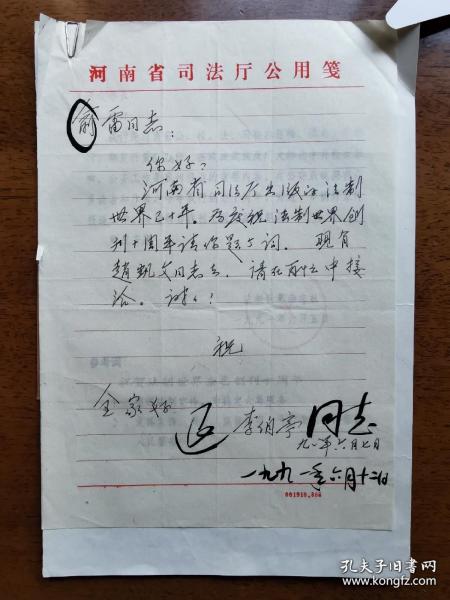 河南省司法厅公用笺
俞雷同志:
你好?
河南省司法厅出版的法制
世界已十年。为庆祝法制世界创
刊十周年请你题个词。现有
赵凯文同志去,请在百忙中接
洽。谢々!
祝
全家好
返 李伯亭 同志
九一年六月七日
一九九一年六月十二日
001910.866
孔夫子旧书网
www.kongfz.com